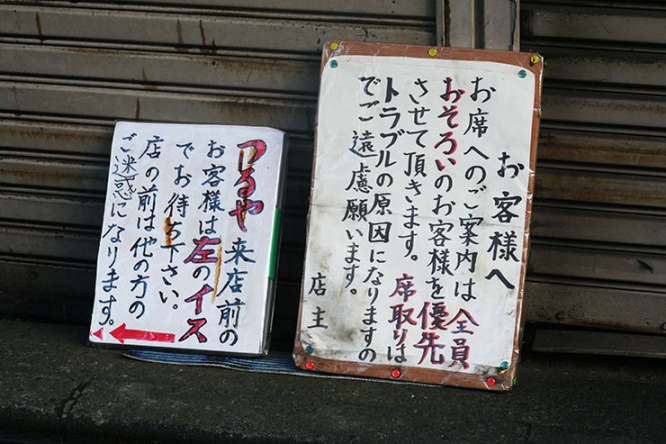 お客様へ
お席へのご案内は全員
おそろいのお客様を優先
させて頂きます。席取りは
トラブルの原因になりますの
でご遠慮願います。
店主
つるや来店前の
お客様は左のイス
でお待ち下さい。
店の前は他の方の
ご迷惑になります。